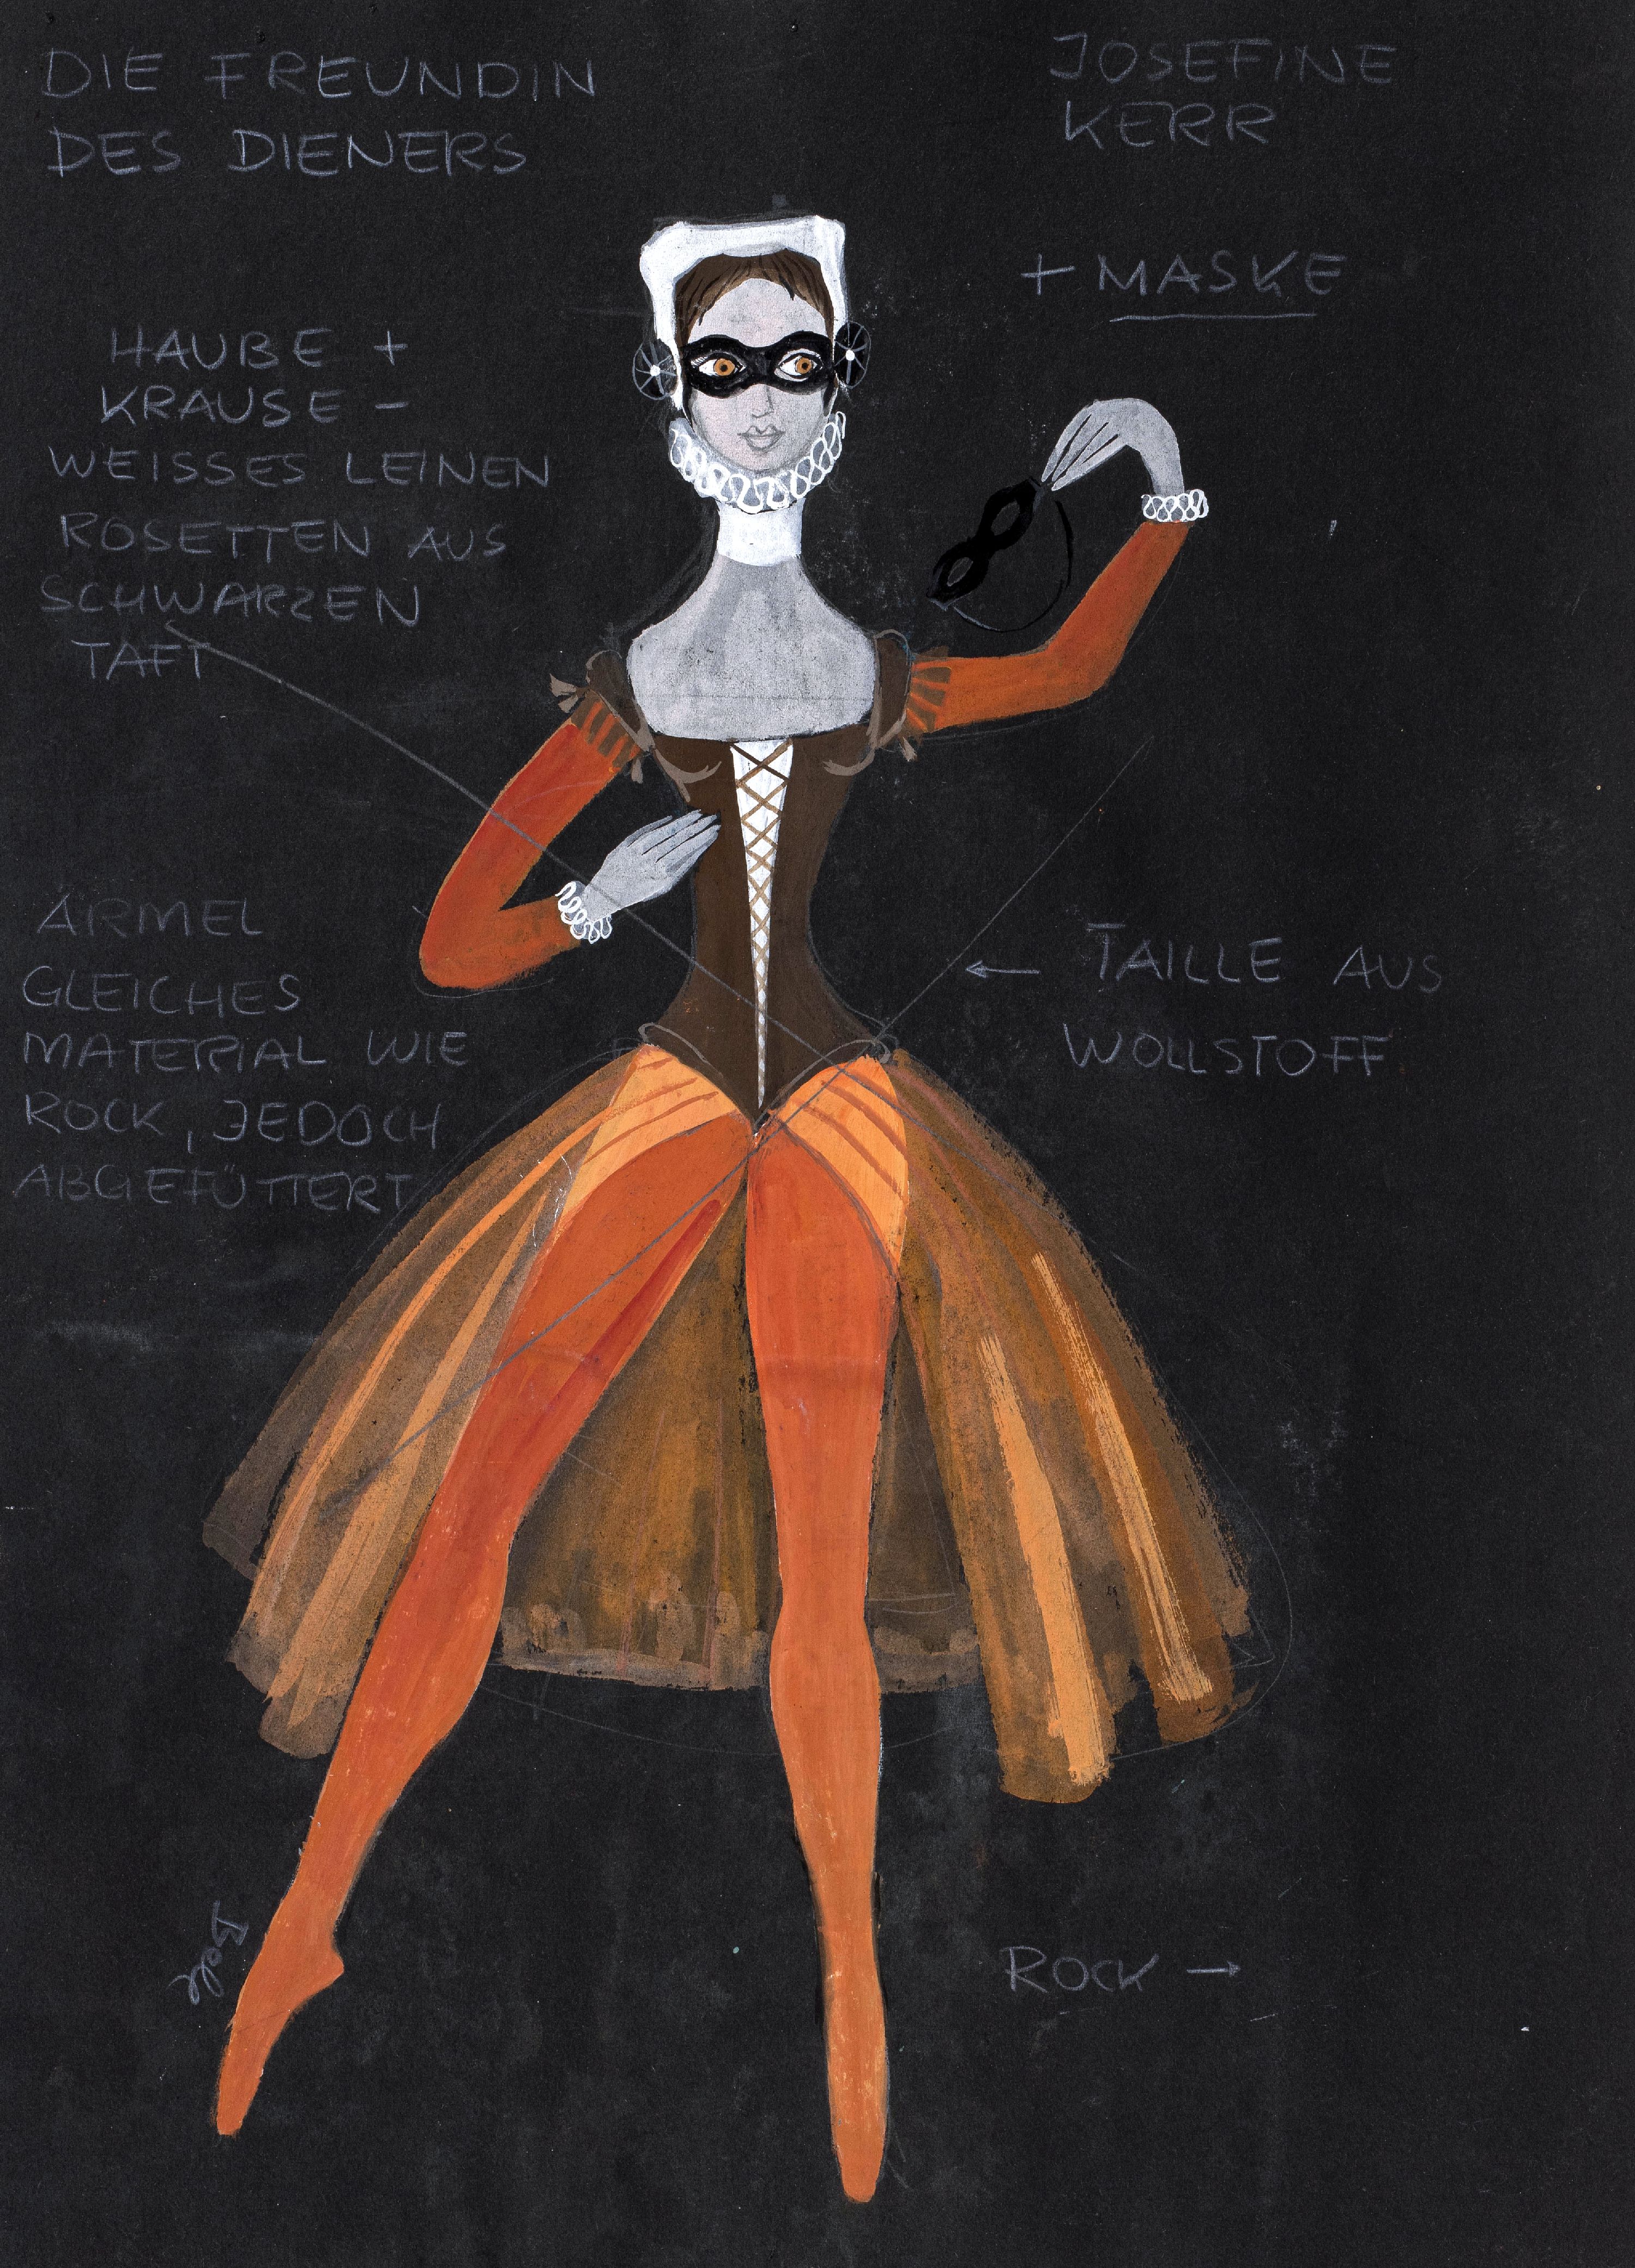 DIE FREUNDIN
DES DIENERS
JOSEFINE
KERR
+ MASKE
HAUBE +
KRAUSE –
WEISSES LEINEN
ROSETTEN AUS
SCHWARZEN
TAFT
ÄRMEL
GLEICHES
MATERIAL WIE
ROCK, JEDOCH
ABGEFÜTTERT
← TAILLE AUS
WOLLSTOFF
ROCK →